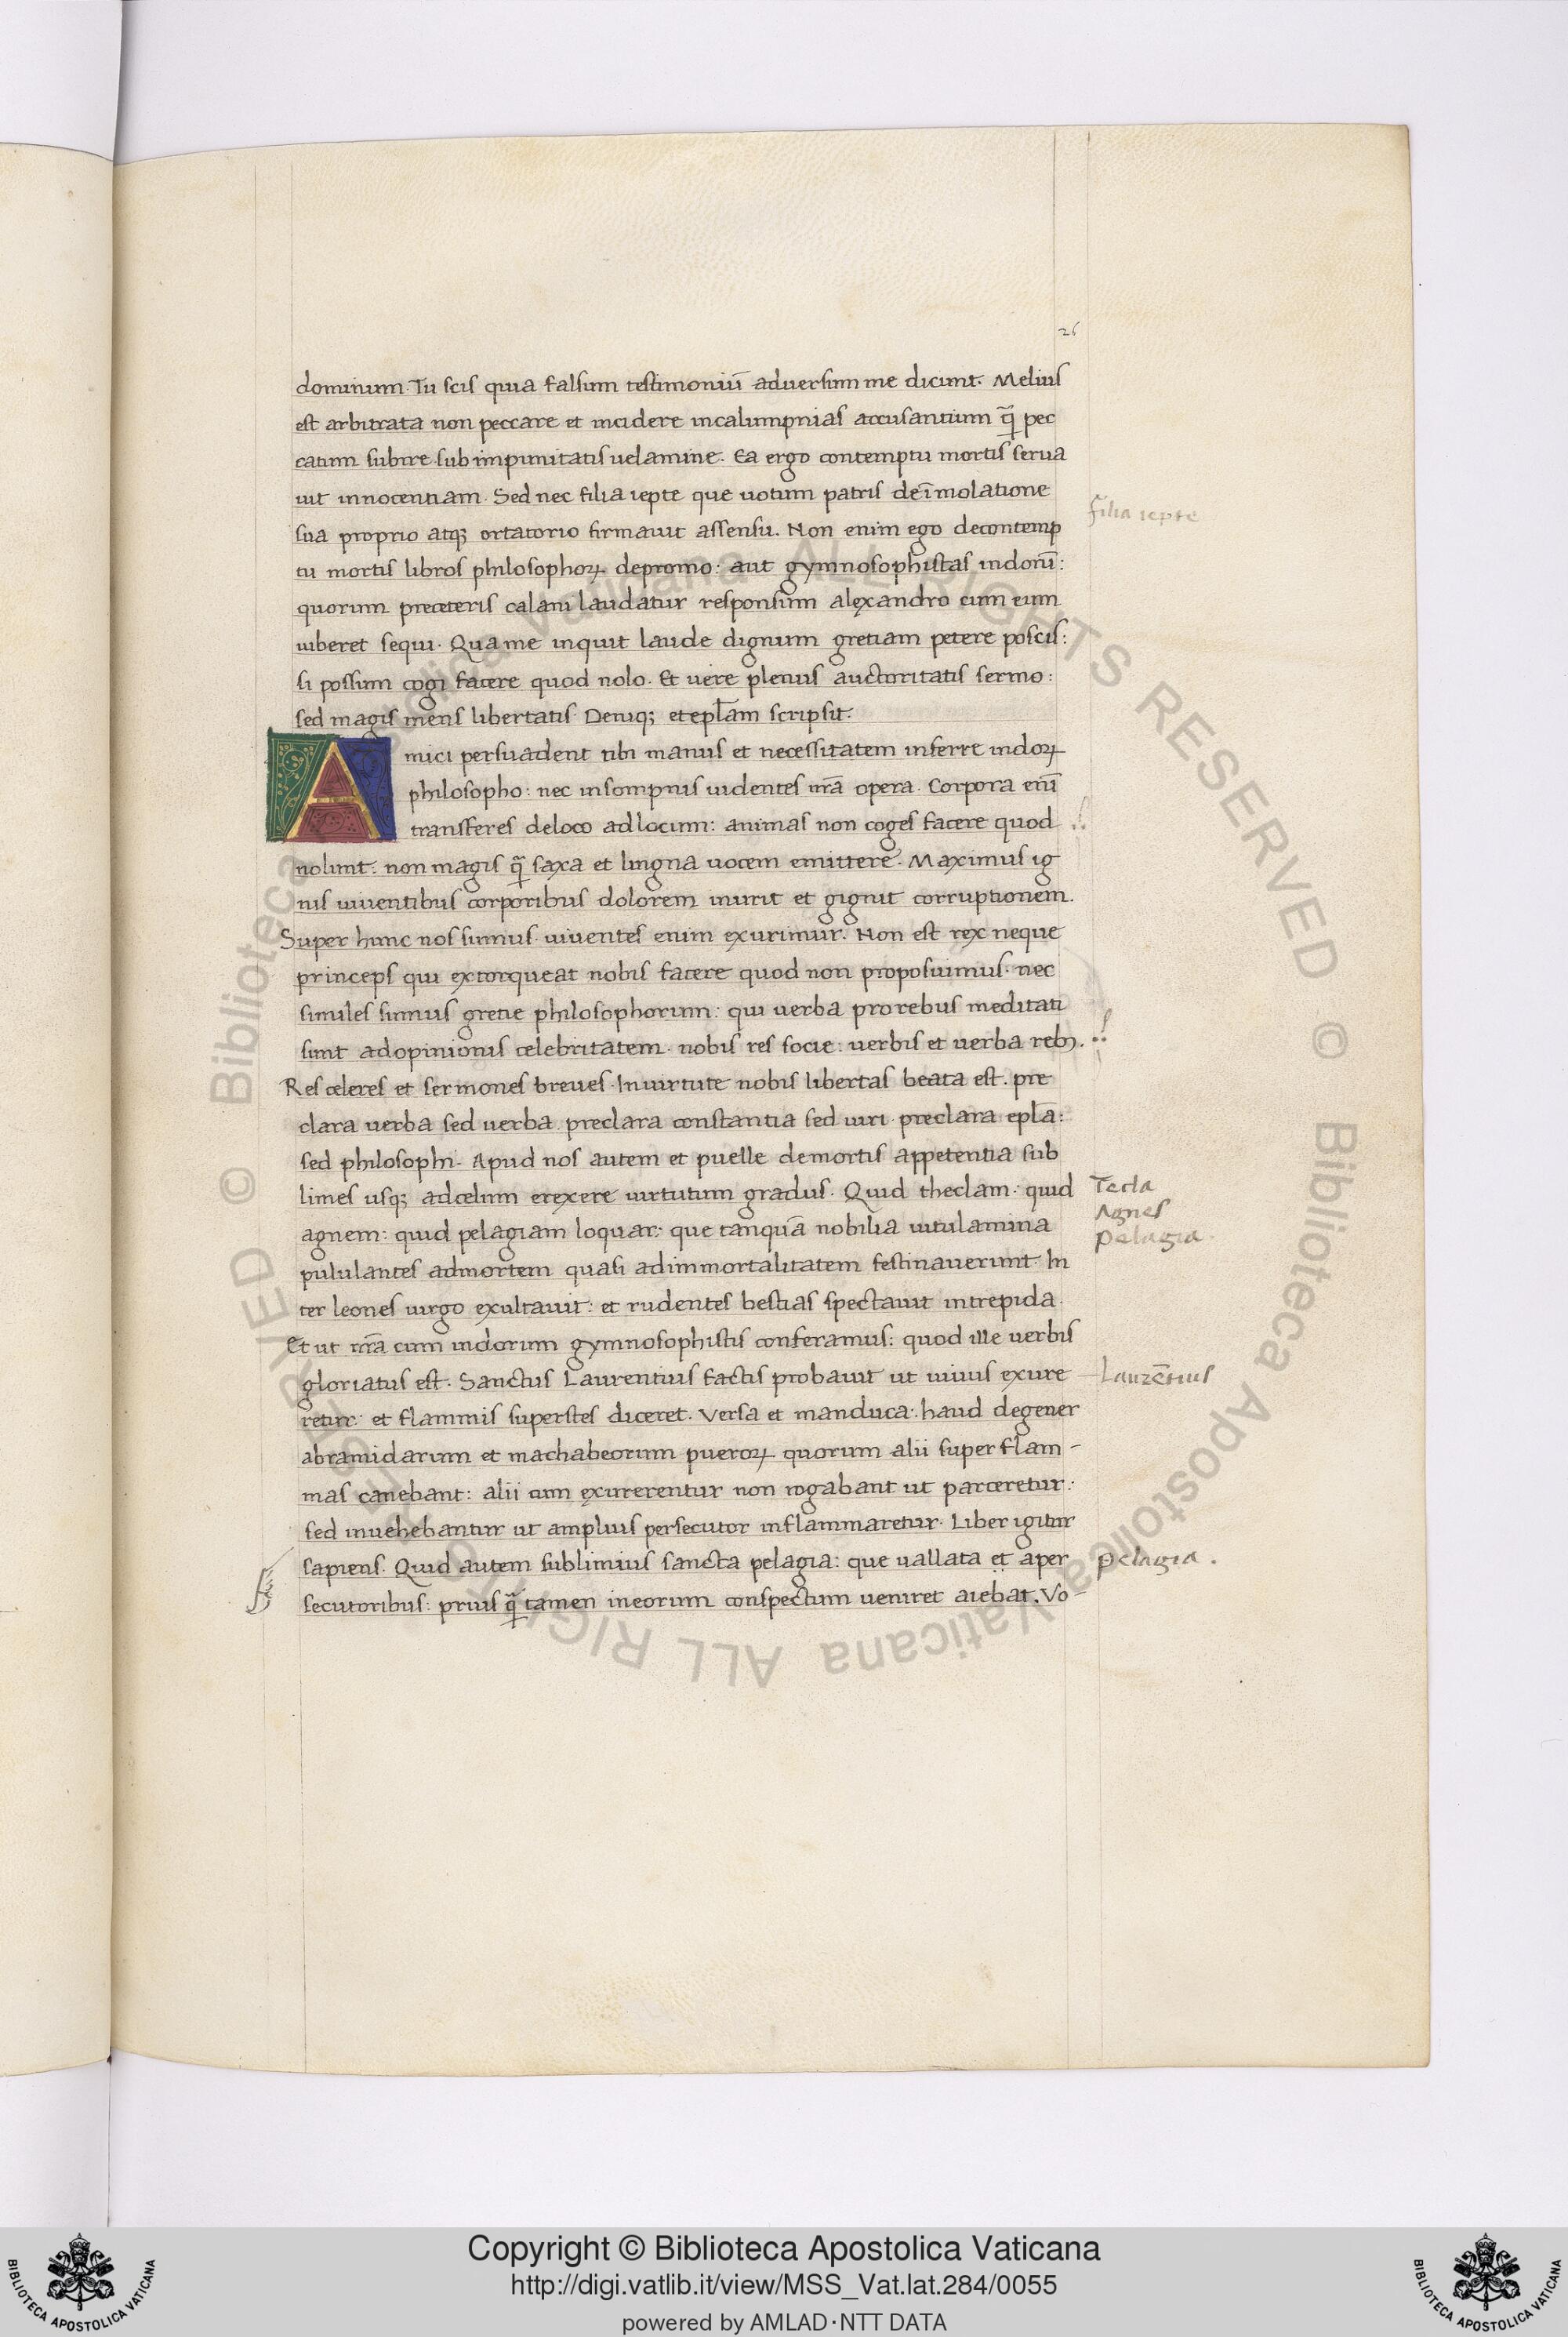 26
dominum. Tu scis quia falsum testimoniū adversum me dicunt. Melius
est arbitrata non peccare et incidere incalumpnias accusantium q̄ pec
catum subire sub impunitatis uelamine. Ea ergo contemptu mortis serua
uit innocentiam. Sed nec filia iepte que uotum patris deīmolatione
sua proprio atq; ortatorio firmauit assensu. Non enim ego decontemp
filia iepte
tu mortis libros philosophoꝝ depromo: aut gymnosophistas indorū:
quorum preceteris calani laudatur responsum alexandro cum eum
iuberet sequi. Qua me inquit laude dignum gretiam petere poscis:
si possum cogi facere quod nolo. Et uere plenus auctoritatis sermo:
sed magis mens libertatis. Deniq; et epl̄am scripsit.
Amici persuadent tibi manus et necessitatem inferre indoꝝ
philosopho: nec insompnis uidentes nr̄a opera. Corpora enī
transferes deloco adlocum: animas non coges facere quod
nolunt: non magis q̄ saxa et lingna uocem emittere. Maximus ig
nis uiuentibus corporibus dolorem inurit et gignit corruptionem.
Super hunc nos sumus. uiuentes enim exurimur. Non est rex neque
princeps qui extorqueat nobis facere quod non proposuimus. nec
similes sumus gretie philosophorum: qui uerba prorebus meditati
sunt adopinionis celebritatem. nobis res socie: uerbis et uerba rebꝫ.
Res celeres et sermones breues. Inuirtute nobis libertas beata est. pre
clara uerba sed uerba. preclara constantia sed uiri. preclara epl̄a:
sed philosophi. Apud nos autem et puelle demortis appetentia sub
limes usq; adcelum erexere uirtutum gradus. Quid theclam: quid
Tecla
Agnes
pelagia.
agnem: quid pelagiam loquar: que tanquā nobilia uitulamina
pululantes admortem quasi adimmortalitatem festinauerunt. In
ter leones uirgo exultauit: et rudentes bestias spectauit intrepida.
Et ut nr̄a cum indorum gymnosophistis conferamus: quod ille uerbis
gloriatus est. Sanctus Laurentius factis probauit ut uiuus exure
Laurētius
retur: et flammis superstes diceret. Versa et manduca: haud degener
abramidarum et machabeorum pueroꝝ quorum alii super flam-
mas canebant: alii cum exurerentur non rogabant ut parceretur:
sed inuehebantur ut amplius persecutor inflammaretur. Liber igitur
sapiens. Quid autem sublimius sancta pelagia: que uallata et aper
pelagia.
secutoribus: prius q̄ tamen ineorum conspectum ueniret aiebat. Vo-
© Biblioteca Apostolica Vaticana ALL RIGHTS RESERVED © Biblioteca Apostolica Vaticana ALL RIGHTS RESERVED
Copyright © Biblioteca Apostolica Vaticana
http://digi.vatlib.it/view/MSS_Vat.lat.284/0055
powered by AMLAD·NTT DATA
BIBLIOTECA APOSTOLICA VATICANA
BIBLIOTECA APOSTOLICA VATICANA